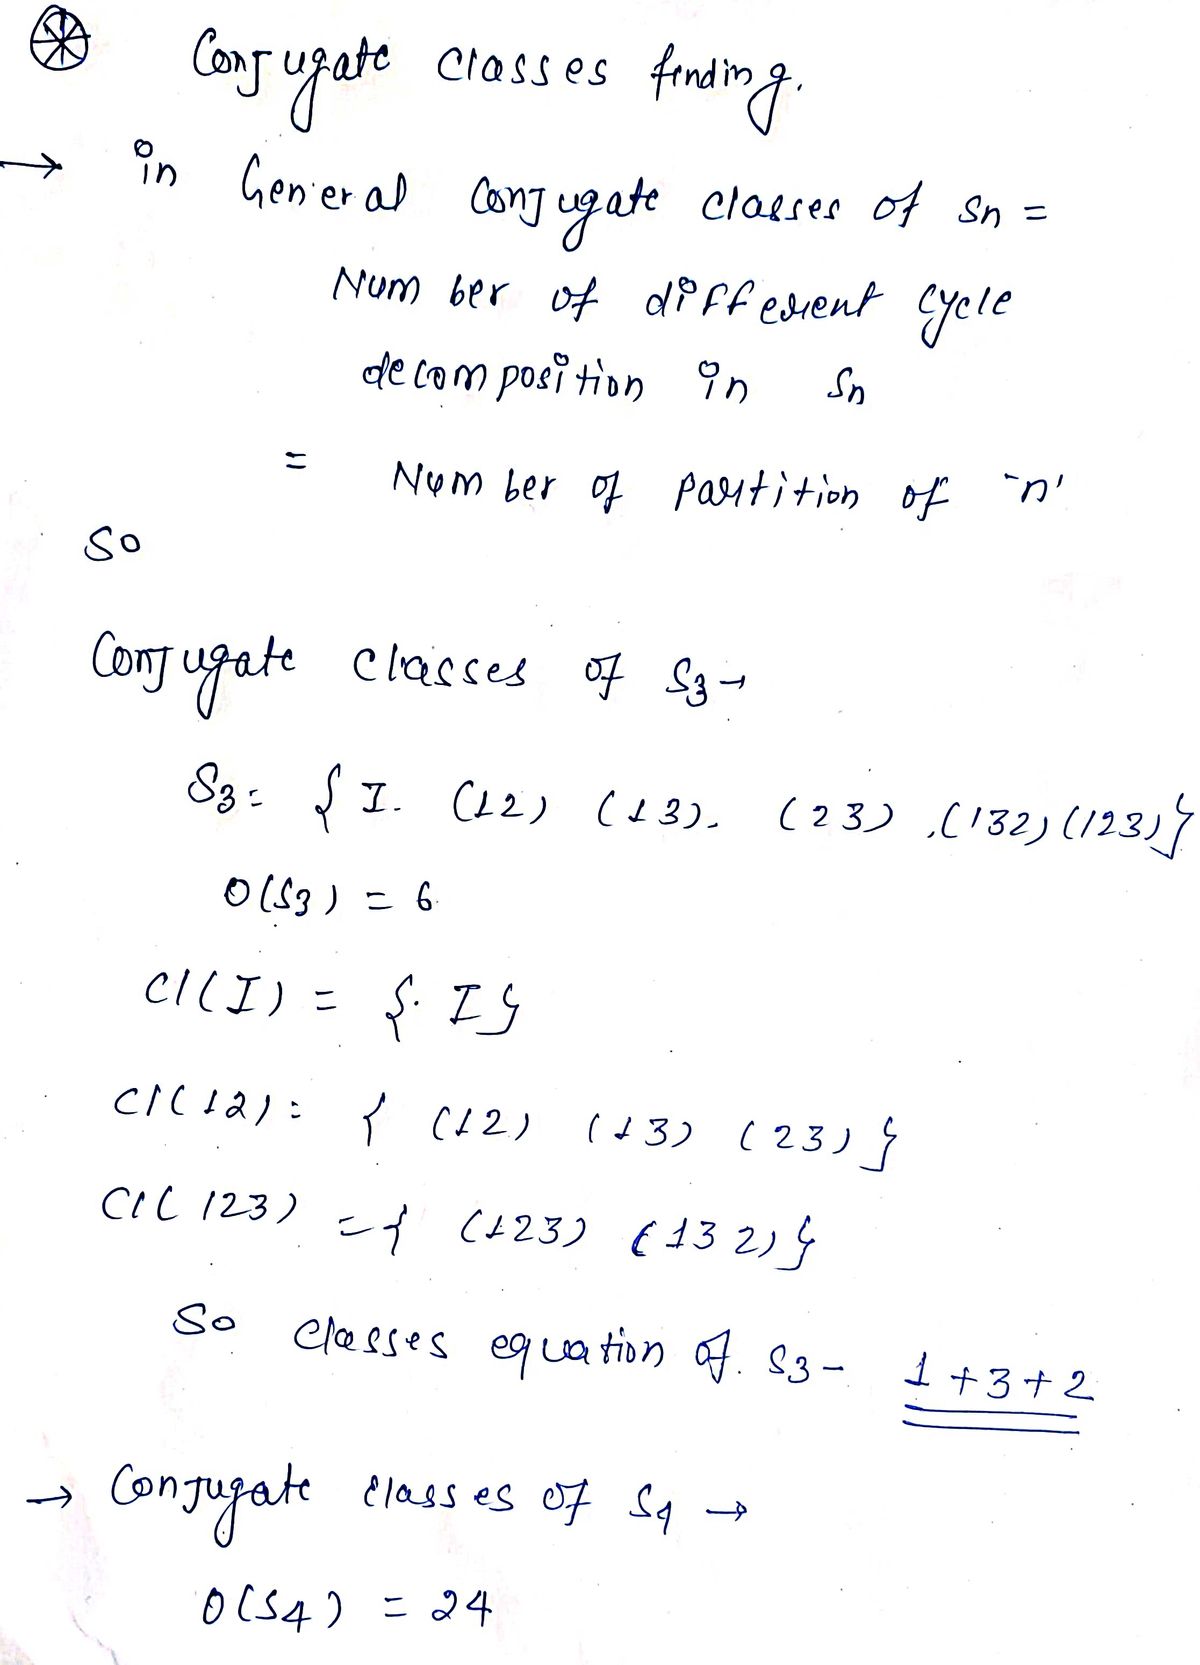 Conjugate classes finding.
→ in General Conjugate classes of Sn =
Number of different cycle
decomposition in Sn
= Number of partition of 'n'
So
Conjugate classes of S3 →
S3 = { I. (12) (13). (23) ,(132) (123)}
O(S3) = 6.
Cl(I) = { I }
Cl(12) = { (12) (13) (23) }
Cl(123) = { (123) (132) }
So classes equation of S3 - 1+3+2
→ Conjugate classes of S4 →
O(S4) = 24